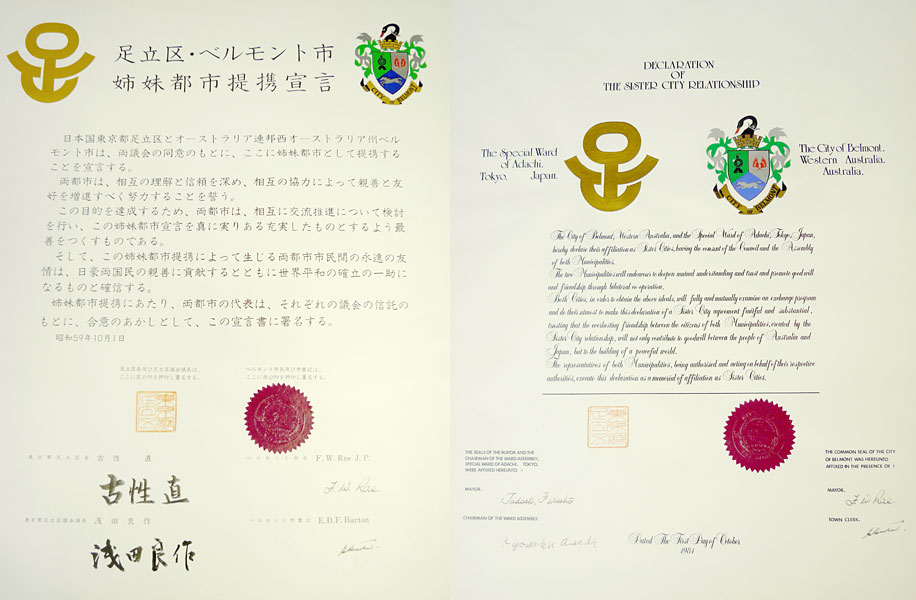 足立区・ベルモント市
姉妹都市提携宣言
CITY OF BELMONT
日本国東京都足立区とオーストラリア連邦西オーストラリア州ベル
モント市は、両議会の同意のもとに、ここに姉妹都市として提携する
ことを宣言する。
両都市は、相互の理解と信頼を深め、相互の協力によって親善と友
好を増進すべく努力することを誓う。
この目的を達成するため、両都市は、相互に交流推進について検討
を行い、この姉妹都市宣言を真に実りある充実したものとするよう最
善をつくすものである。
そして、この姉妹都市提携によって生じる両都市市民間の永遠の友
情は、日豪両国民の親善に貢献するとともに世界平和の確立の一助に
なるものと確信する。
姉妹都市提携にあたり、両都市の代表は、それぞれの議会の信託の
もとに、合意のあかしとして、この宣言書に署名する。
昭和59年10月1日
足立区長及び足立区議会議長は、
ここに区長印を押印し署名する。
ベルモント市長及び市書記は、
ここに市公印を押印し署名する。
東京都足立区長 古性 直
ベルモント市長 F.W. Rae J.P.
古性直
F W Rae
東京都足立区議会議長 浅田良作
ベルモント市書記 E.D.F. Burton
浅田良作
DECLARATION
OF
THE SISTER CITY RELATIONSHIP
The Special Ward
of Adachi,
Tokyo, Japan.
CITY OF BELMONT
The City of Belmont,
Western Australia,
Australia.
The City of Belmont, Western Australia, and the Special Ward of Adachi, Tokyo, Japan,
hereby declare their affiliation as Sister Cities, having the consent of the Council and the Assembly
of both Municipalities.
The two Municipalities will endeavour to deepen mutual understanding and trust and promote good will
and friendship through bilateral co-operation.
Both Cities, in order to obtain the above ideals, will fully and mutually examine an exchange program
and do their utmost to make this declaration of a Sister City agreement fruitful and substantial,
trusting that the everlasting friendship between the citizens of both Municipalities, created by the
Sister City relationship, will not only contribute to goodwill between the people of Australia and
Japan, but to the building of a peaceful world.
The representatives of both Municipalities, being authorised and acting on behalf of their respective
authorities, execute this declaration as a memorial of affiliation as Sister Cities.
THE SEALS OF THE MAYOR AND THE
CHAIRMAN OF THE WARD ASSEMBLY,
SPECIAL WARD OF ADACHI, TOKYO,
WERE AFFIXED HEREUNTO :
THE COMMON SEAL OF THE CITY
OF BELMONT WAS HEREUNTO
AFFIXED IN THE PRESENCE OF :
MAYOR.
MAYOR.
F W Rae
CHAIRMAN OF THE WARD ASSEMBLY.
TOWN CLERK.
Dated The First Day of October
1984